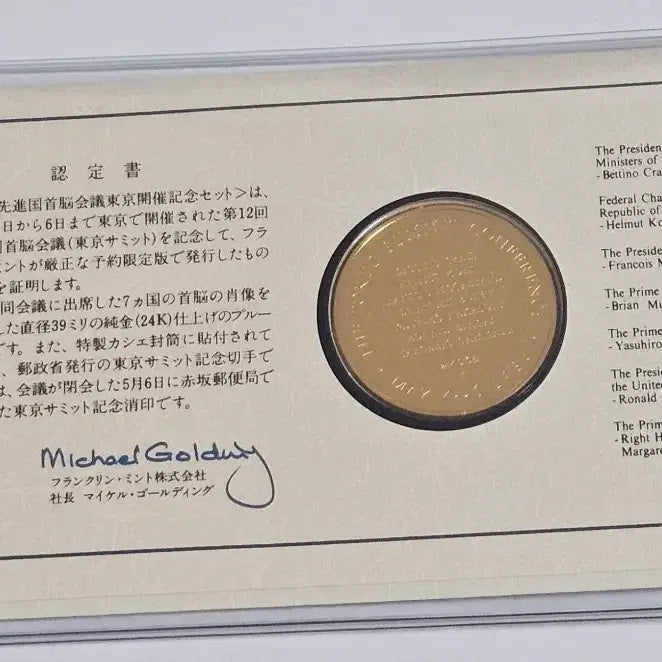 認定書
先進国首脳会議東京開催記念セット>は、
日から6日まで東京で開催された第12回
国首脳会議(東京サミット)を記念して、フラ
ミントが厳正な予約限定版で発行したもの
を証明します。
同会議に出席した7ヵ国の首脳の肖像を
した直径39ミリの純金(24K)仕上げのプルー
です。また、特製カシェ封筒に貼付されて
、郵政省発行の東京サミット記念切手で
は、会議が閉会した5月6日に赤坂郵便局で
た東京サミット記念消印です。
Michael Golding
フランクリン・ミント株式会社
社長 マイケル・ゴールディング
THE TOKYO SUMMIT CONFERENCE
The Presiden
Ministers of
- Bettino Cra
Federal Cha
Republic of
- Helmut Ko
The Presiden
- Francois M
The Prime
- Brian Mu
The Prime
- Yasuhiro
The Presid
the United
- Ronald
The Prim
- Right H
Margare